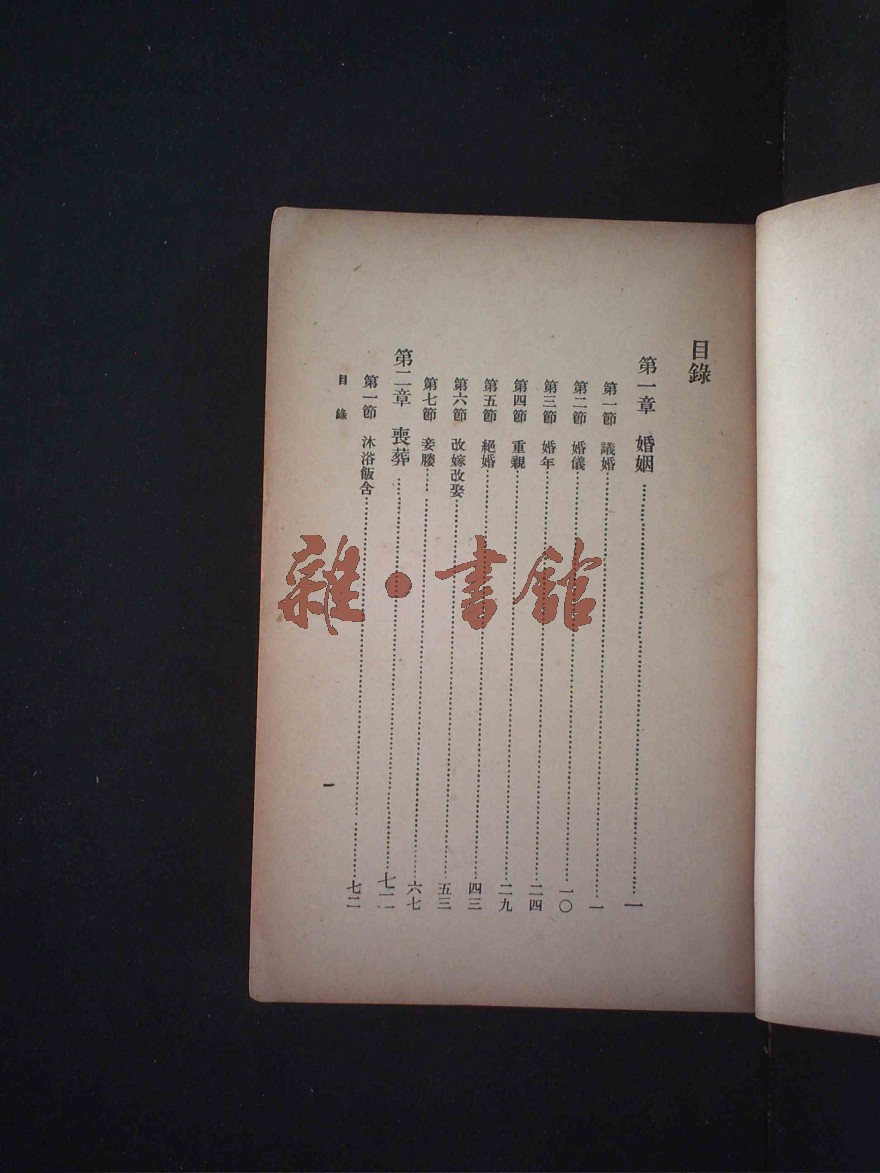 目錄
第一章 婚姻……一
第一節 議婚……一
第二節 婚儀……一〇
第三節 婚年……二四
第四節 重親……二九
第五節 絕婚……四三
第六節 改嫁改娶……五三
第七節 妾媵……六七
第二章 喪葬……七二
第一節 沐浴飯含……七二
目錄
一
雜·書館